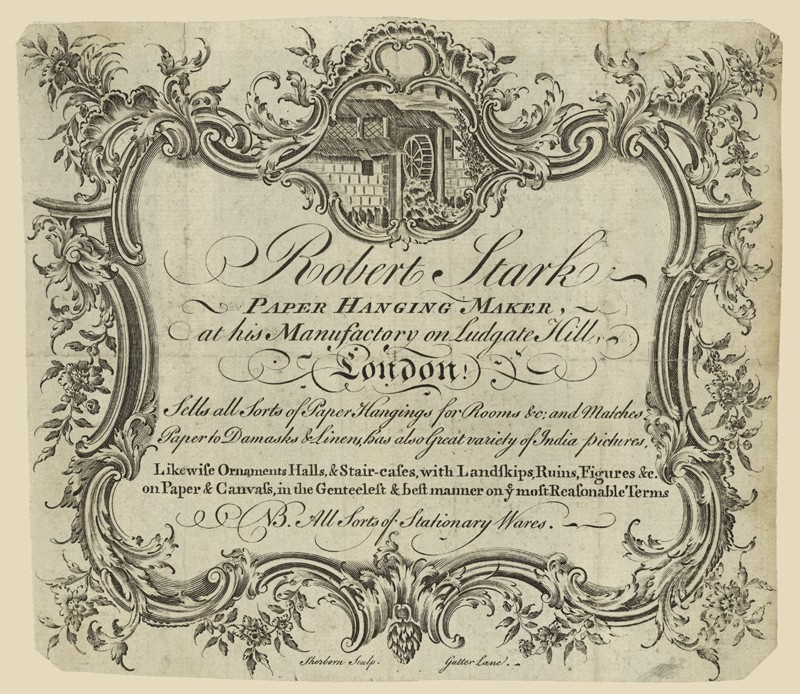 Robert Stark
PAPER HANGING MAKER,
at his Manufactory on Ludgate Hill,
London!
Sells all Sorts of Paper Hangings for Rooms &c; and Matches
Paper to Damasks & Linens, has also Great variety of India pictures,
Likewiſe Ornaments Halls, & Stair-caſes, with Landſkips, Ruins, Figures &c.
on Paper & Canvaſs, in the Genteeleſt & beſt manner on yͤ moſt Reaſonable Terms
NB. All Sorts of Stationary Wares.
Sherborn Sculp. Gutter Lane.